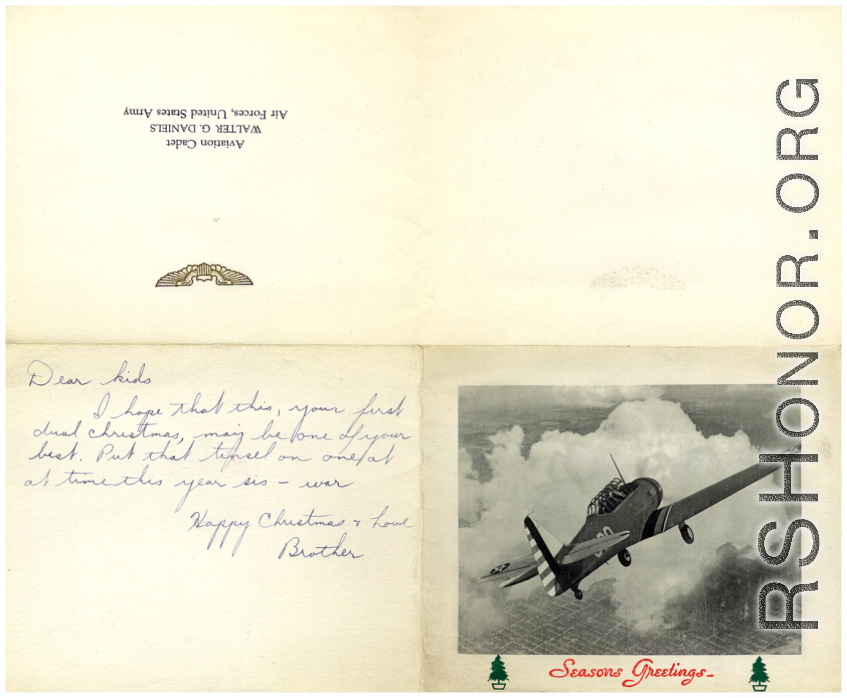 Aviation Cadet
WALTER G. DANIELS
Air Forces, United States Army
Dear kids
I hope that this, your first
dual christmas, may be one of your
best. Put that tinsel on one at
at time this year sis – war
Happy Christmas & Love
Brother
Seasons Greetings-
RSHONOR.ORG